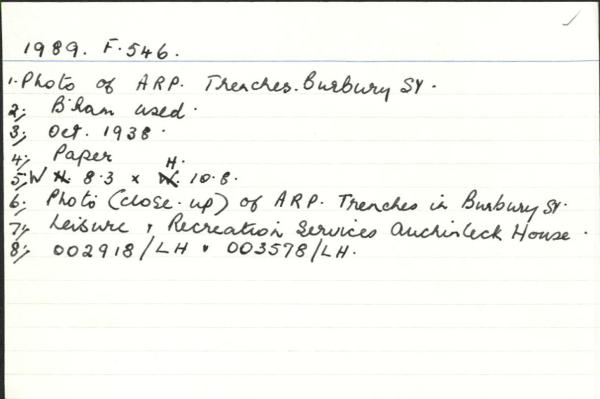 1989. F.546.
1. Photo of ARP. Trenches. Burbury St.
2; B'ham used.
3; Oct. 1938.
4; Paper
5; W H. 8.3 x H. W. 10.8.
6. Photo (close-up) of ARP. Trenches in Burbury St.
7; Leisure & Recreation Services Auchinleck House.
8; 002918/LH & 003578/LH.